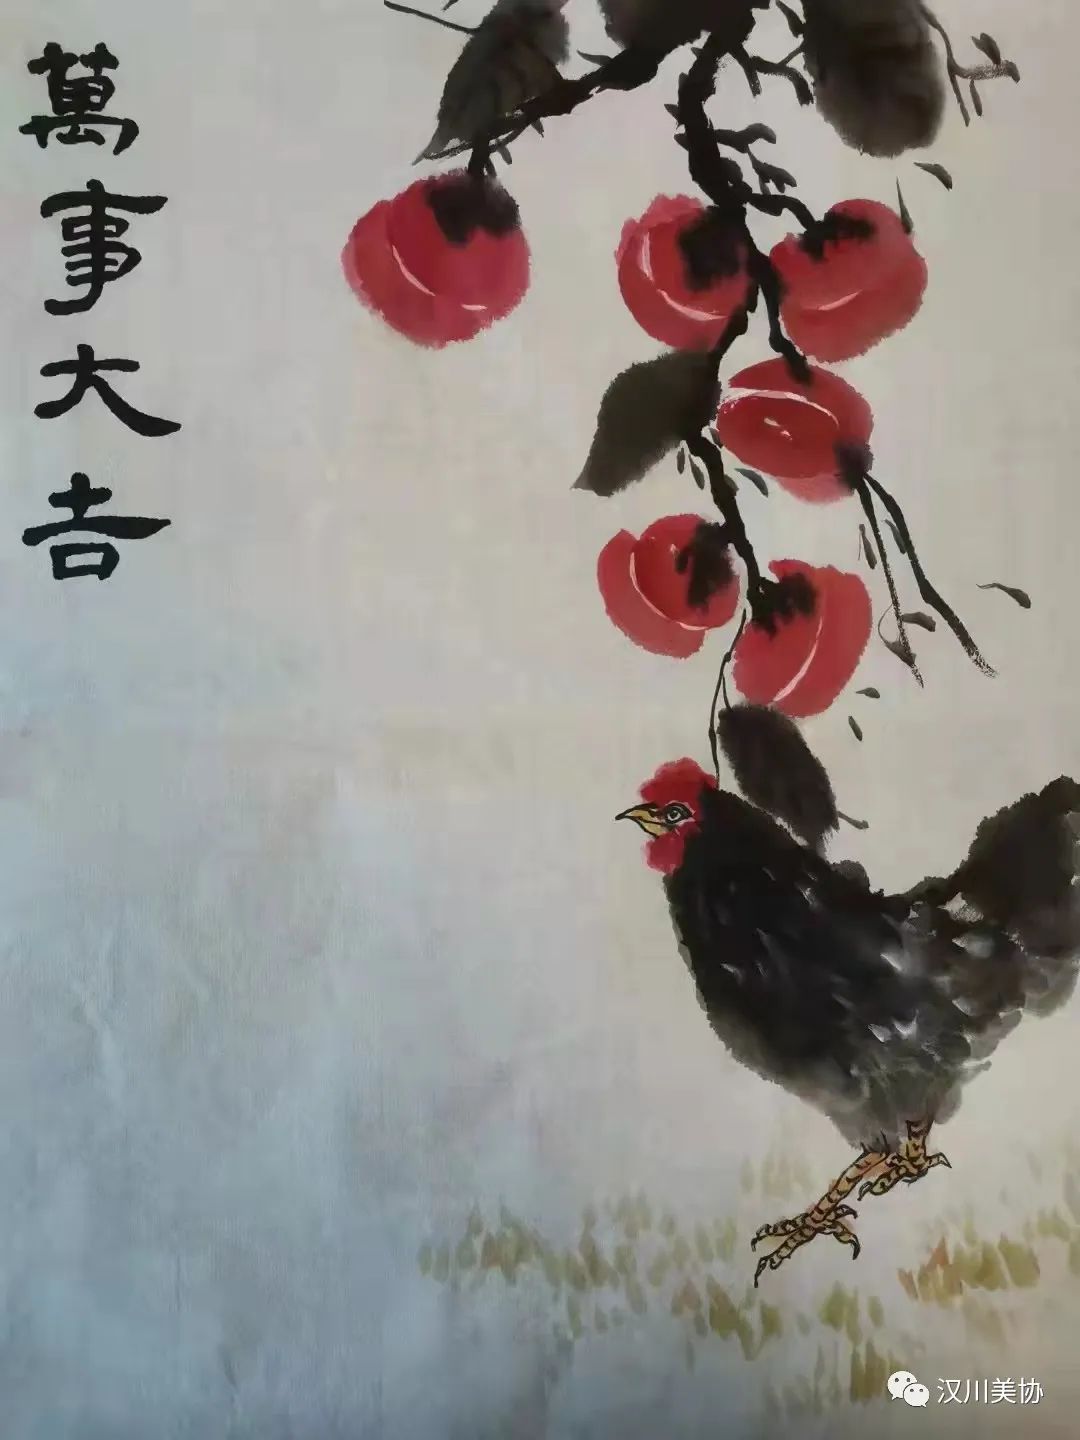 萬事大吉
汉川美协